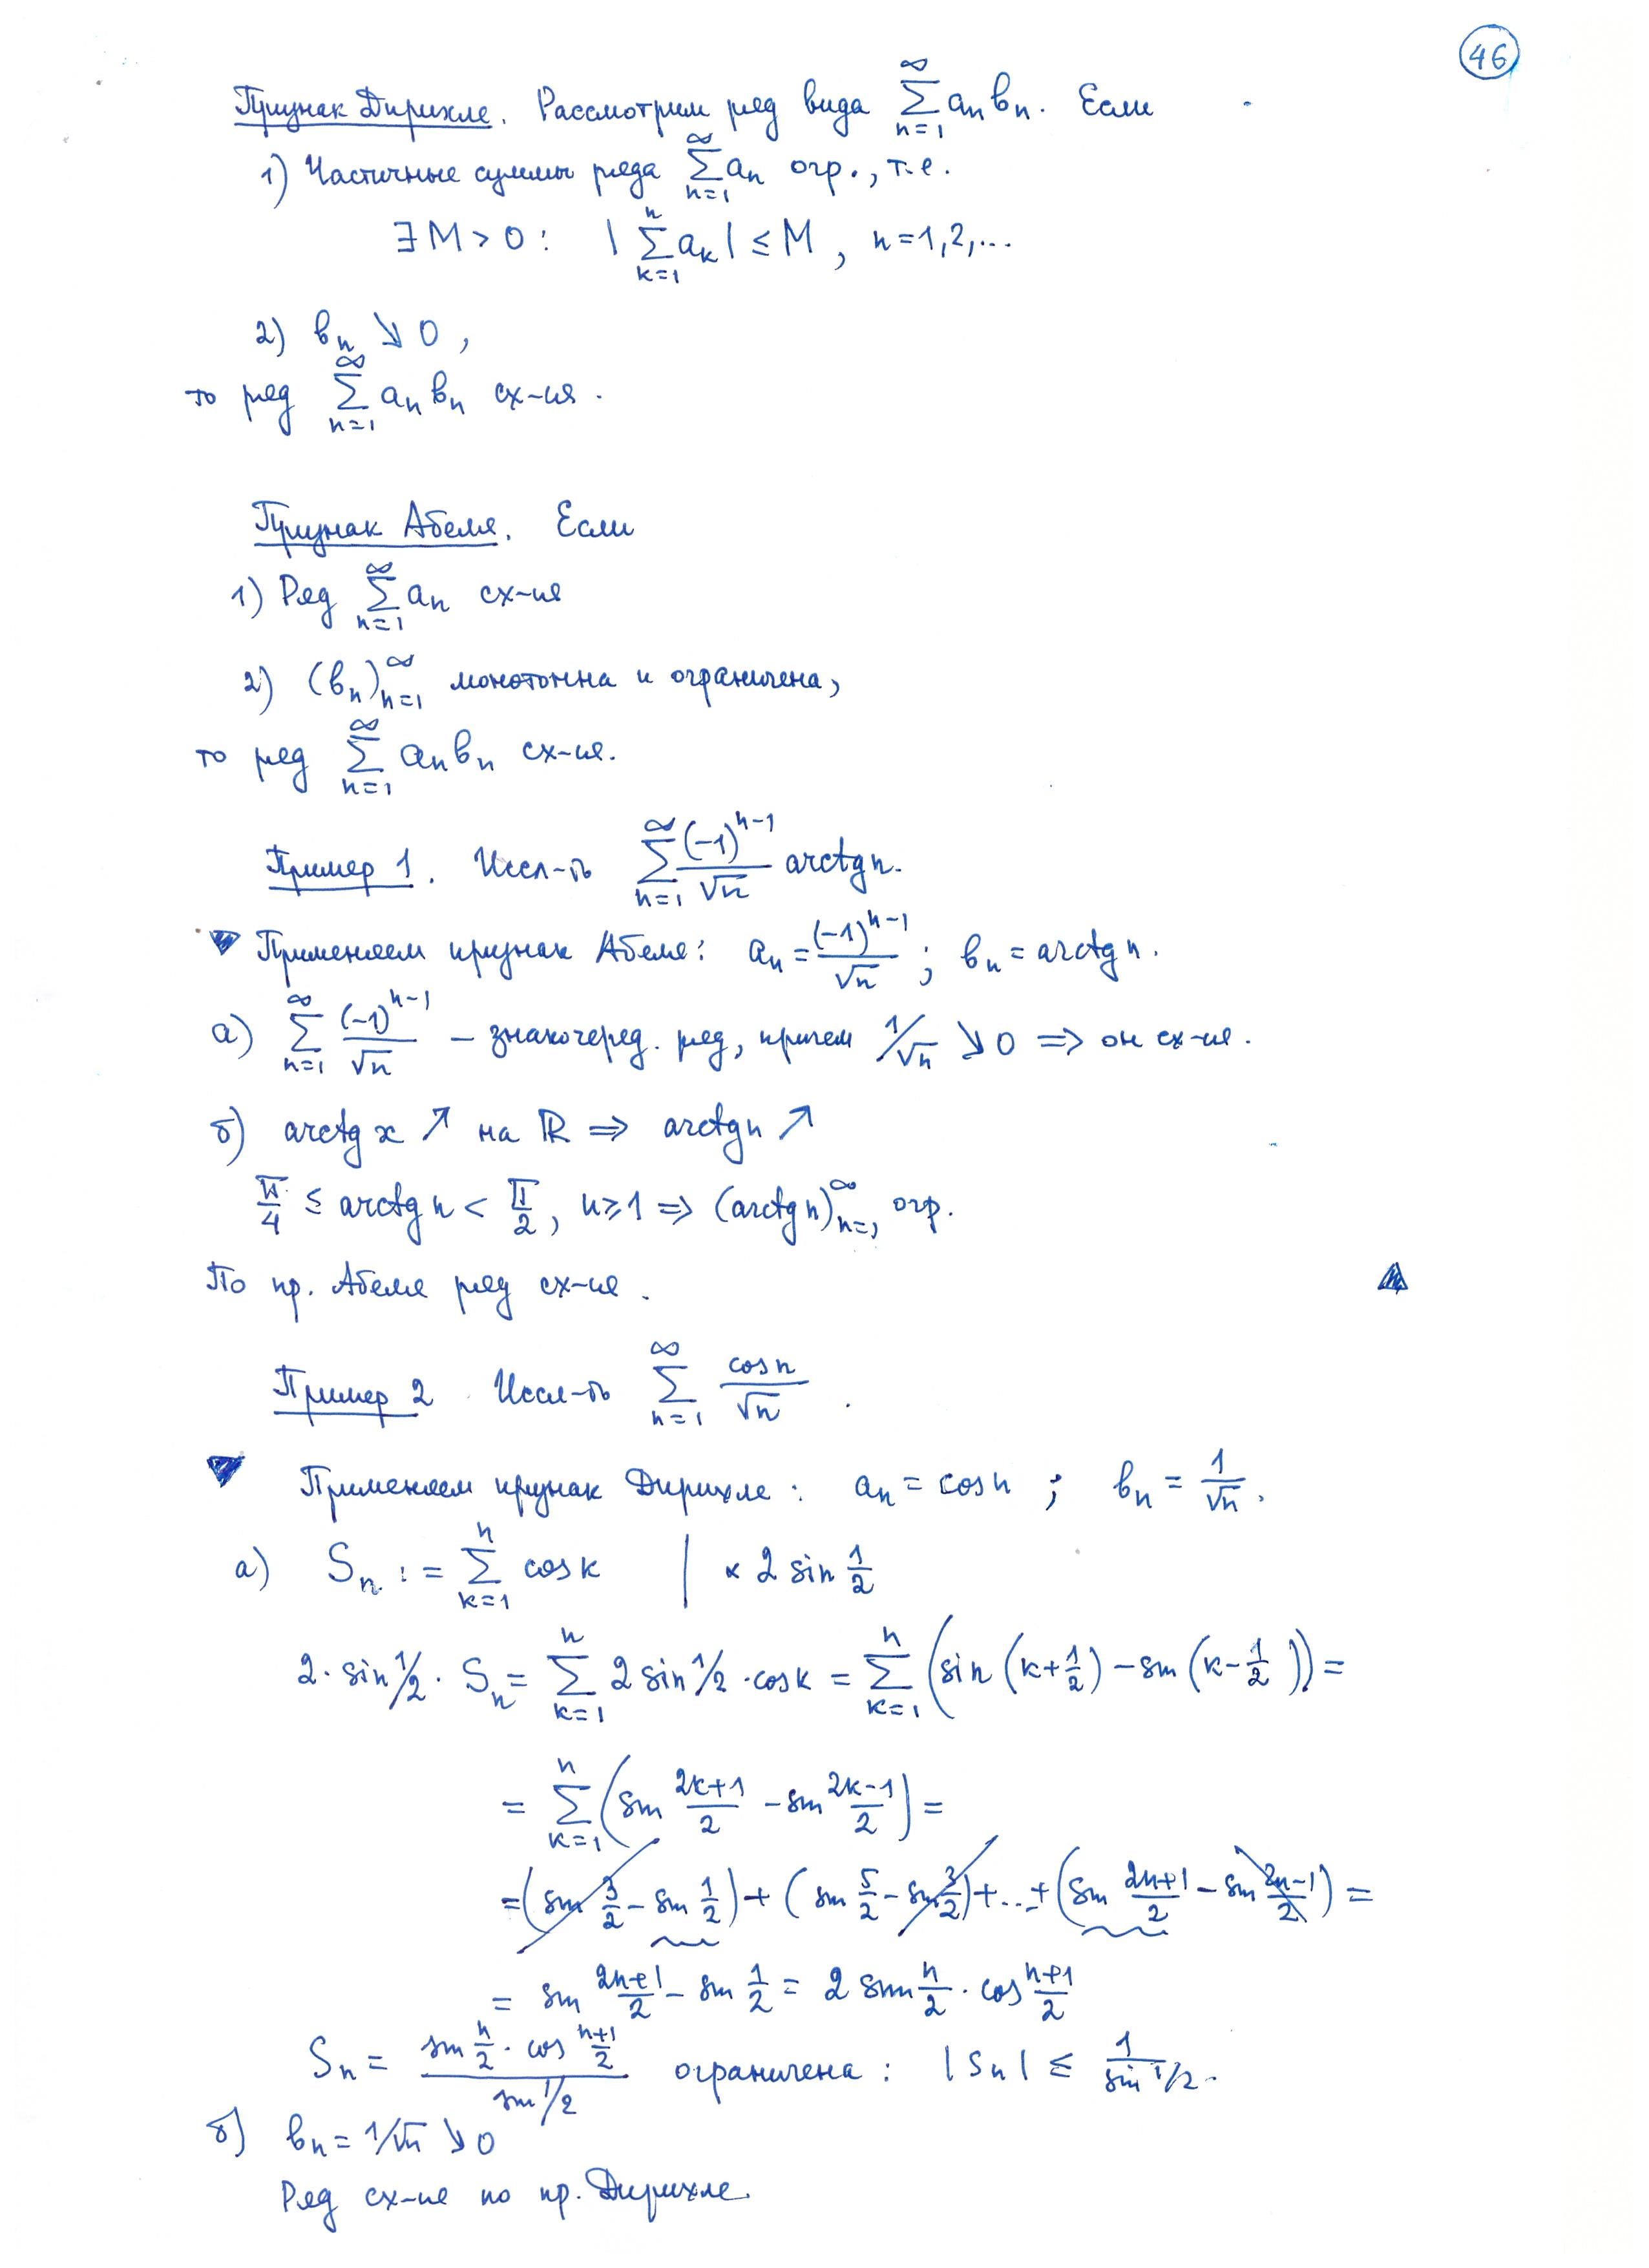 46
Признак Дирихле. Рассмотрим ряд вида \sum_{n=1}^{\infty} a_n b_n. Если
1) Частичные суммы ряда \sum_{n=1}^{\infty} a_n огр., т.е.
∃ M > 0 : |\sum_{k=1}^{n} a_k| ≤ M, n=1,2,...
2) b_n ↘ 0,
то ряд \sum_{n=1}^{\infty} a_n b_n сх-ся.
Признак Абеля. Если
1) Ряд \sum_{n=1}^{\infty} a_n сх-ся
2) (b_n)_{n=1}^{\infty} монотонна и ограничена,
то ряд \sum_{n=1}^{\infty} a_n b_n сх-ся.
Пример 1. Иссл-ть \sum_{n=1}^{\infty} \frac{(-1)^{n-1}}{\sqrt{n}} arctg n.
▼ Применяем признак Абеля: a_n = \frac{(-1)^{n-1}}{\sqrt{n}}; b_n = arctg n.
а) \sum_{n=1}^{\infty} \frac{(-1)^{n-1}}{\sqrt{n}} – знакочеред. ряд, причем 1/\sqrt{n} ↘ 0 ⇒ он сх-ся.
б) arctg x ↗ на ℝ ⇒ arctg n ↗
\frac{π}{4} ≤ arctg n < \frac{π}{2}, n ≥ 1 ⇒ (arctg n)_{n=1}^{\infty} огр.
По пр. Абеля ряд сх-ся. ▲
Пример 2 Иссл-ть \sum_{n=1}^{\infty} \frac{cos n}{\sqrt{n}}.
▼ Применяем признак Дирихле: a_n = cos n; b_n = \frac{1}{\sqrt{n}}.
а) S_n := \sum_{k=1}^{n} cos k | × 2 sin \frac{1}{2}
2 · sin 1/2 · S_n = \sum_{k=1}^{n} 2 sin 1/2 · cos k = \sum_{k=1}^{n} (sin (k+\frac{1}{2}) – sin (k-\frac{1}{2})) =
= \sum_{k=1}^{n} (sin \frac{2k+1}{2} – sin \frac{2k-1}{2}) =
= (sin \frac{3}{2} – sin \frac{1}{2}) + (sin \frac{5}{2} – sin \frac{3}{2}) + ... + (sin \frac{2n+1}{2} – sin \frac{2n-1}{2}) =
= sin \frac{2n+1}{2} – sin \frac{1}{2} = 2 sin \frac{n}{2} · cos \frac{n+1}{2}
S_n = \frac{sin \frac{n}{2} · cos \frac{n+1}{2}}{sin 1/2} ограничена: |S_n| ≤ \frac{1}{sin 1/2}.
б) b_n = 1/\sqrt{n} ↘ 0
Ряд сх-ся по пр. Дирихле.